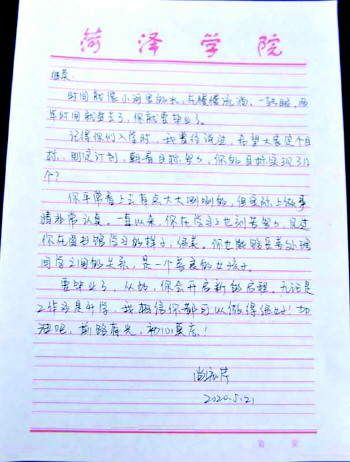 菏泽学院
时间就像小河里的水,在慢慢流淌,一转眼,两
年时间就要去了,你就要毕业了。
记得你们入学时,我曾经说过,希望大家定个目
标,制定计划,朝着目标努力,你的目标实现了几
个?
你平常看上去有点大大咧咧的,但实际上做事
情非常认真。一直以来,你在学习上也刻苦努力,见过
你在图书馆学习的样子,很美。你也能够妥善处理
同学之间的关系,是一个善良的女孩子。
要毕业了,从此,你会开启新的启程,无论是
工作还是升学,我相信你都可以做得很好!加
油吧,前路有光,初心莫忘!
2020.5.21
第 页